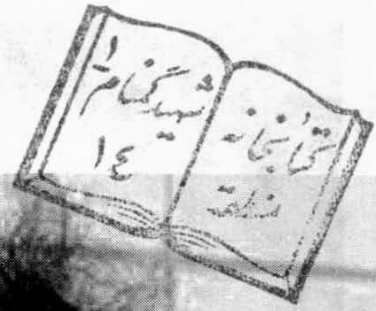 کتابخانه شهید گمنام ۱
منطقه ۱٤